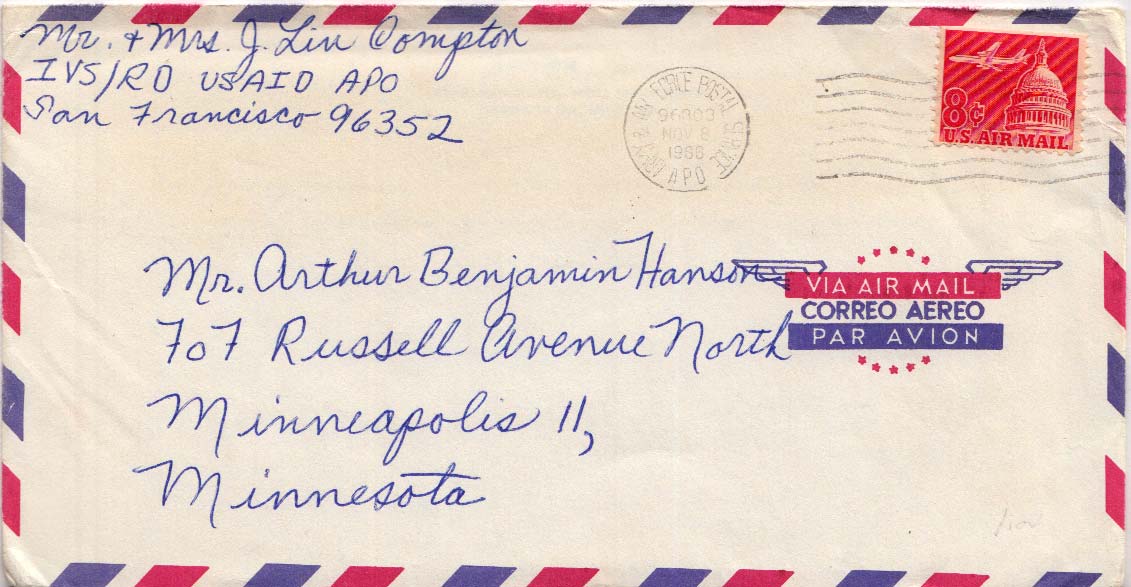 Mr. + Mrs. J. Lin Compton
IVS/RD USAID APO
San Francisco 96352
ARMY & AIR FORCE POSTAL SERVICE
NOV 8
1966
APO
8¢
U.S. AIR MAIL
Mr. Arthur Benjamin Hanson
707 Russell Avenue North
Minneapolis 11,
Minnesota
VIA AIR MAIL
CORREO AEREO
PAR AVION